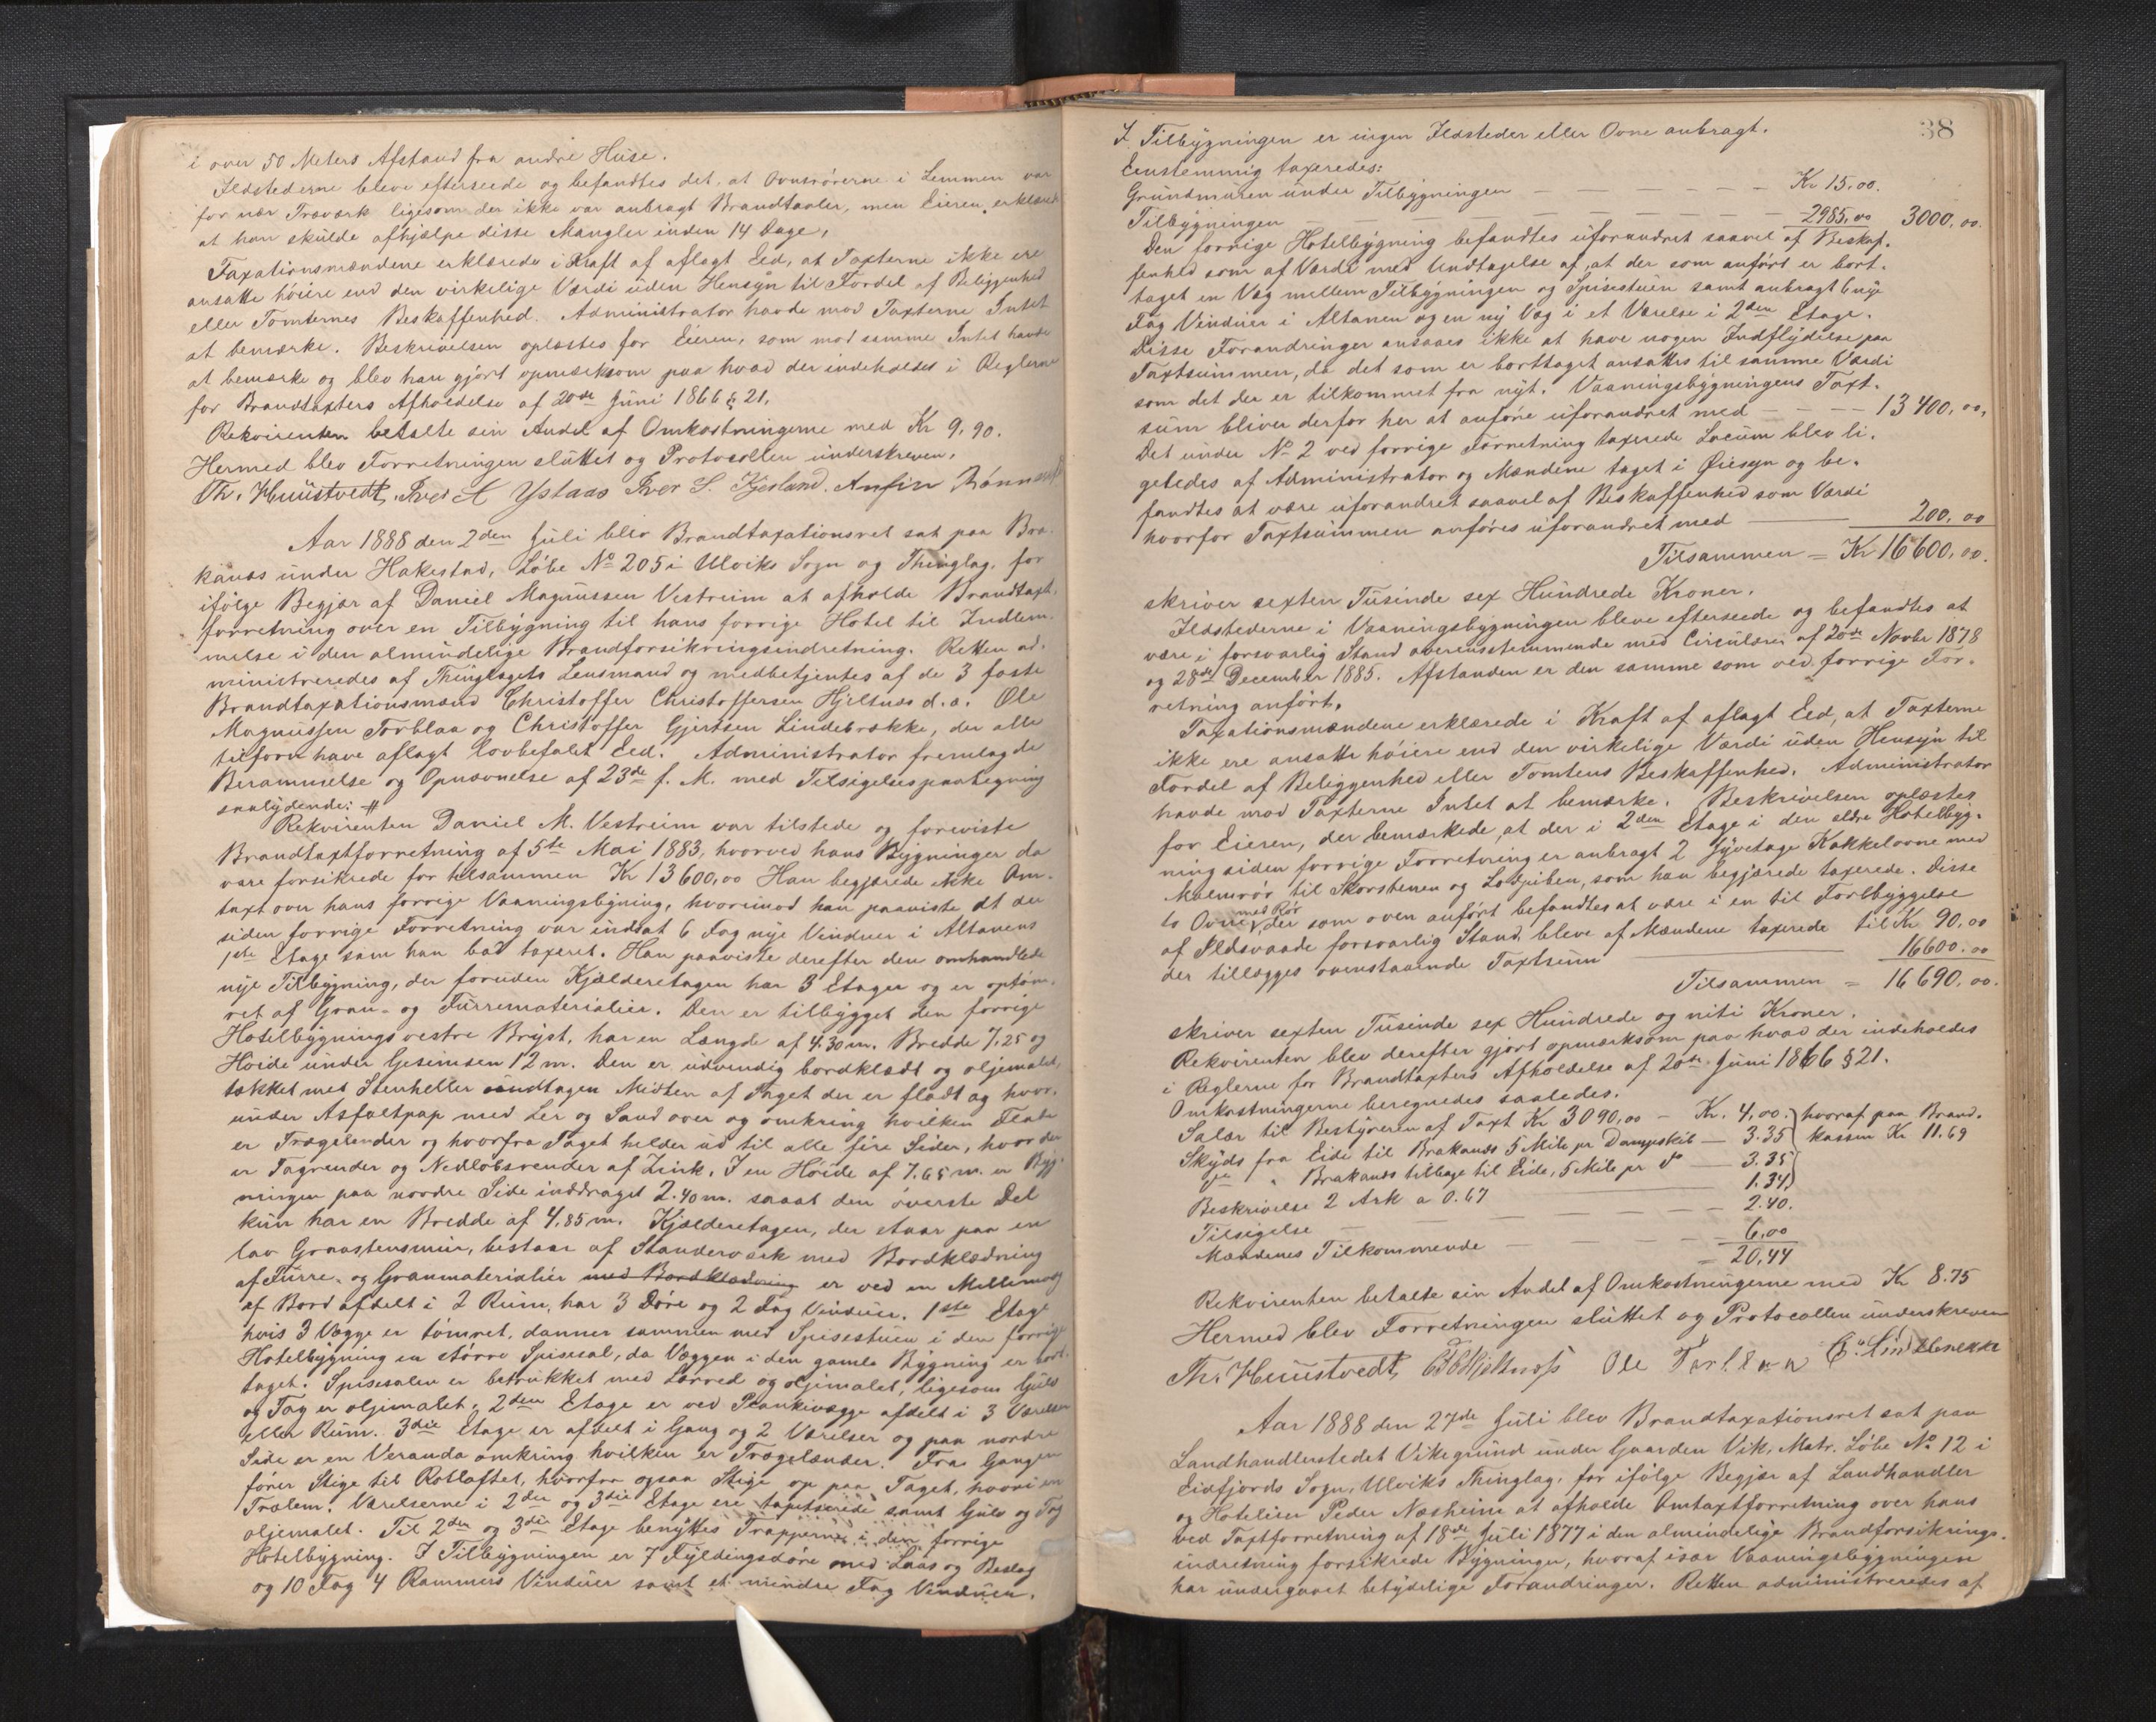 i over 50 Meters Afstand fra andre Huse.
Ildstederne bleve efterseede og befandtes det, at Ovnsrørerne i Lemmen var
for nær Træværk ligesom der ikke var anbragt Brandtavler, men Eieren erklærede
at han skulde afhjælpe disse Mangler inden 14 Dage,
Taxationsmændene erklærede i Kraft af aflagt Eed, at Taxterne ikke ere
ansatte høiere end den virkelige Værdi uden Hensyn til Fordel af Beliggenhed
eller Tomternes Beskaffenhed. Administrator havde mod Taxterne Intet
at bemærke. Beskrivelsen oplæstes for Eieren, som mod samme Intet havde
at bemærke og blev han gjort opmærksom paa hvad der indeholdes i Reglerne
for Brandtaxters Afholdelse af 20de Juni 1866 § 21.
Rekvirenten betalte sin Andel af Omkostningerne med Kr 9,90.
Hermed blev Forretningen sluttet og Protocollen underskreven.
Th. Huustvedt, Iver A Ystaas Iver S. Kjerland. Anfin
Aar 1888 den 2den Juli blev Brandtaxationsret sat paa Bra-
kanæs under Hakestad, Løbe No 205 i Ulviks Sogn og Thinglag, for
ifølge Begjær af Daniel Magnussen Vestreim at afholde Brandtaxt-
forretning over en Tilbygning til hans forrige Hotel til Indlem-
melse i den almindelige Brandforsikringsindretning. Retten ad-
ministreredes af Thinglagets Lensmand og medbetjentes af de 3 faste
Brandtaxationsmænd Christoffer Christoffersen Hjeltnæs d.æ. Ole
Magnussen Torblaa og Christoffer Gjertsen Lindebrække, der alle
tilforn have aflagt lovbefalet Eed. Administrator fremlagde
Berammelse og Opnævnelse af 23de f. M. med Tilsigelsespaategning
saalydende: #
Rekvirenten Daniel M. Vestreim var tilstede og foreviste
Brandtaxtforretning af 5te Mai 1883, hvorved hans Bygninger da
vare forsikrede for tilsammen Kr 13600,00 Han begjærede ikke Om-
taxt over hans forrige Vaaningsbygning, hvorimod han paaviste at der
siden forrige Forretning var indsat 6 Fag nye Vinduer i Altanens
1ste Etage som han bad taxeret. Han paaviste derefter den omhandlede
nye Tilbygning, der foruden Kjælderetagen har 3 Etager og er optøm-
ret af Gran- og Furrematerialier. Den er tilbygget den forrige
Hotelbygnings vestre Bryst, har en Længde af 4.30 m. Bredde 7,25 og
Høide under Gesimsen 12 m. Den er udvendig bordklædt og oljemalet,
tækket met Stenheller undtagen Midten af Taget der er fladt og hvor-
under Asfaltpap med Ler og Sand over og omkring hvilken Flade
er Trægelender og hvorfra Taget helder ud til alle fire Sider, hvor der
er Tagrender og Nedløbsrender af Zink. I en Høide af 7.65 m. er Byg-
ningen paa nordre Side inddraget 2.40 m. saaat den øverste Del
kun har en Bredde af 4,85 m. Kjælderetagen, der staar paa en
lav Graastensmur, bestaar af Standerværk med Bordklædning
af Furre- og Granmaterialier med Bordklædning er ved en Mellemvæg
af Bord afdelt i 2 Rum, har 3 Døre og 2 Fag Vinduer. 1ste Etage
hvis 3 Vægge er tømret, danner sammen med Spisestuen i den forrige
Hotelbygning en større Spisesal, da Væggen i den gamle Bygning er bort-
taget. Spisesalen er betrukket med Lærred og oljemalet, ligesom Gulv
og Tag er oljemalet. 2den Etage er ved Plankevægge afdelt i 3 Værelser
eller Rum. 3die Etage er afdelt i Gang og 2 Værelser og paa nordre
Side er en Veranda omkring hvilken er Trægelænder. Fra Gangen
fører Stige til Rotloftet, hvorfra ogsaa Stige op paa Taget, hvori en
Trælem. Værelserne i 2den og 3die Etage ere tapetserede samt Gulv og Tag
oljemalet. Til 2den og 3die Etage benyttes Trapperne i den forrige
Hotelbygning. I Tilbygningen er 7 Fyldingsdøre med Laas og Beslag
og 10 Fag 4 Rammers Vinduer samt et mindre Fag Vinduer.
38
I Tilbygningen er ingen Ildsteder eller Ovne anbragt.
Eenstemmig taxeredes:
Grundmuren under Tilbygningen — Kr 15,00.
Tilbygningen — 2985,00 3000,00.
Den forrige Hotelbygning befandtes uforandret saavel af Beskaf-
fenhed som af Værdi med Undtagelse af, at der som anført er bort-
taget en Væg mellem Tilbygningen og Spisestuen samt anbragt 6 nye
Fag Vinduer i Altanen og en ny Væg i et Værelse i 2den Etage.
Disse Forandringer ansaaes ikke at have nogen Indflydelse paa
Taxtsummen, da det som er borttaget ansattes til samme Værdi
som det der er tilkommet fra nyt. Vaaningsbygningens Taxt-
sum bliver derfor her at anføre uforandret med — 13400,00,
Det under No 2 ved forrige Forretning taxerede Locum blev li-
geledes af Administrator og Mændene taget i Øiesyn og be-
fandtes at være uforandret saavel af Beskaffenhed som Værdi
hvorfor Taxtsummen anføres uforandret med — 200,00
Tilsammen = Kr 16600,00.
skriver sexten Tusinde sex Hundrede Kroner.
Ildstederne i Vaaningsbygningen bleve efterseede og befandtes at
være i forsvarlig Stand overensstemmende med Circulærer af 20de Novbr 1878
og 28de December 1885. Afstanden er den samme som ved forrige For-
retning anført.
Taxationsmændene erklærede i Kraft af aflagt Eed, at Taxterne
ikke ere ansatte høiere end den virkelige Værdi uden Hensyn til
Fordel af Beliggenhed eller Tomtens Beskaffenhed. Administrator
havde mod Taxterne Intet at bemærke. Beskrivelsen oplæstes
for Eieren, der bemærkede, at der i 2den Etage i den ældre Hotelbyg-
ning siden forrige Forretning er anbragt 2 Kakkelovne med
Malmrør til Skorstenen og Lodpiben, som han begjærede taxerede. Disse
to Ovne med Rør der som oven anført befandtes at være i en til Forebyggelse
af Ildsvaade forsvarlig Stand, bleve af Mændene taxerede til Kr 90,00
der tillægges ovenstaaende Taxtsum — 16600.00
Tilsammen = 16690,00.
skriver sexten Tusinde sex Hundrede og niti Kroner.
Rekvirenten blev derefter gjort opmærksom paa hvad der indeholdes
i Reglerne for Brandtaxters Afholdelse af 20de Juni 1866 § 21.
Omkostningerne beregnedes saaledes.
Salær til Bestyreren af Taxt Kr 3090,00 — Kr. 4,00. hvoraf paa Brand-
Skyds fra Eide til Brakanæs 5 Mile pr Dampskib — 3.35 kassen Kr 11.69
" Brakanæs tilbage til Eide, 5 Mile pr do — 3.35
Beskrivelse 2 Ark a 0.67 — 1.34
Tilsigelse — 2.40.
Mændenes Tilkommende — 6,00
= 20,44
Rekvirenten betalte sin Andel af Omkostningerne med Kr 8.75
Hermed blev Forretningen sluttet og Protocollen underskreven
Th. Huustvedt, CCHjeltnæss Ole Torblaa C. Lindebrekke
Aar 1888 den 27de Juli blev Brandtaxationsret sat paa
Landhandlerstedet Vikegrund under Gaarden Vik, Matr. Løbe No 12 i
Eidfjords Sogn, Ulviks Thinglag, for ifølge Begjær af Landhandler
og Hotelier Peder Næsheim at afholde Omtaxtforretning over hans
ved Taxtforretning af 18de Juli 1877 i den almindelige Brandforsikrings-
indretning forsikrede Bygninger, hvoraf især Vaaningsbygningen
har undergaaet betydelige Forandringer. Retten administreredes af